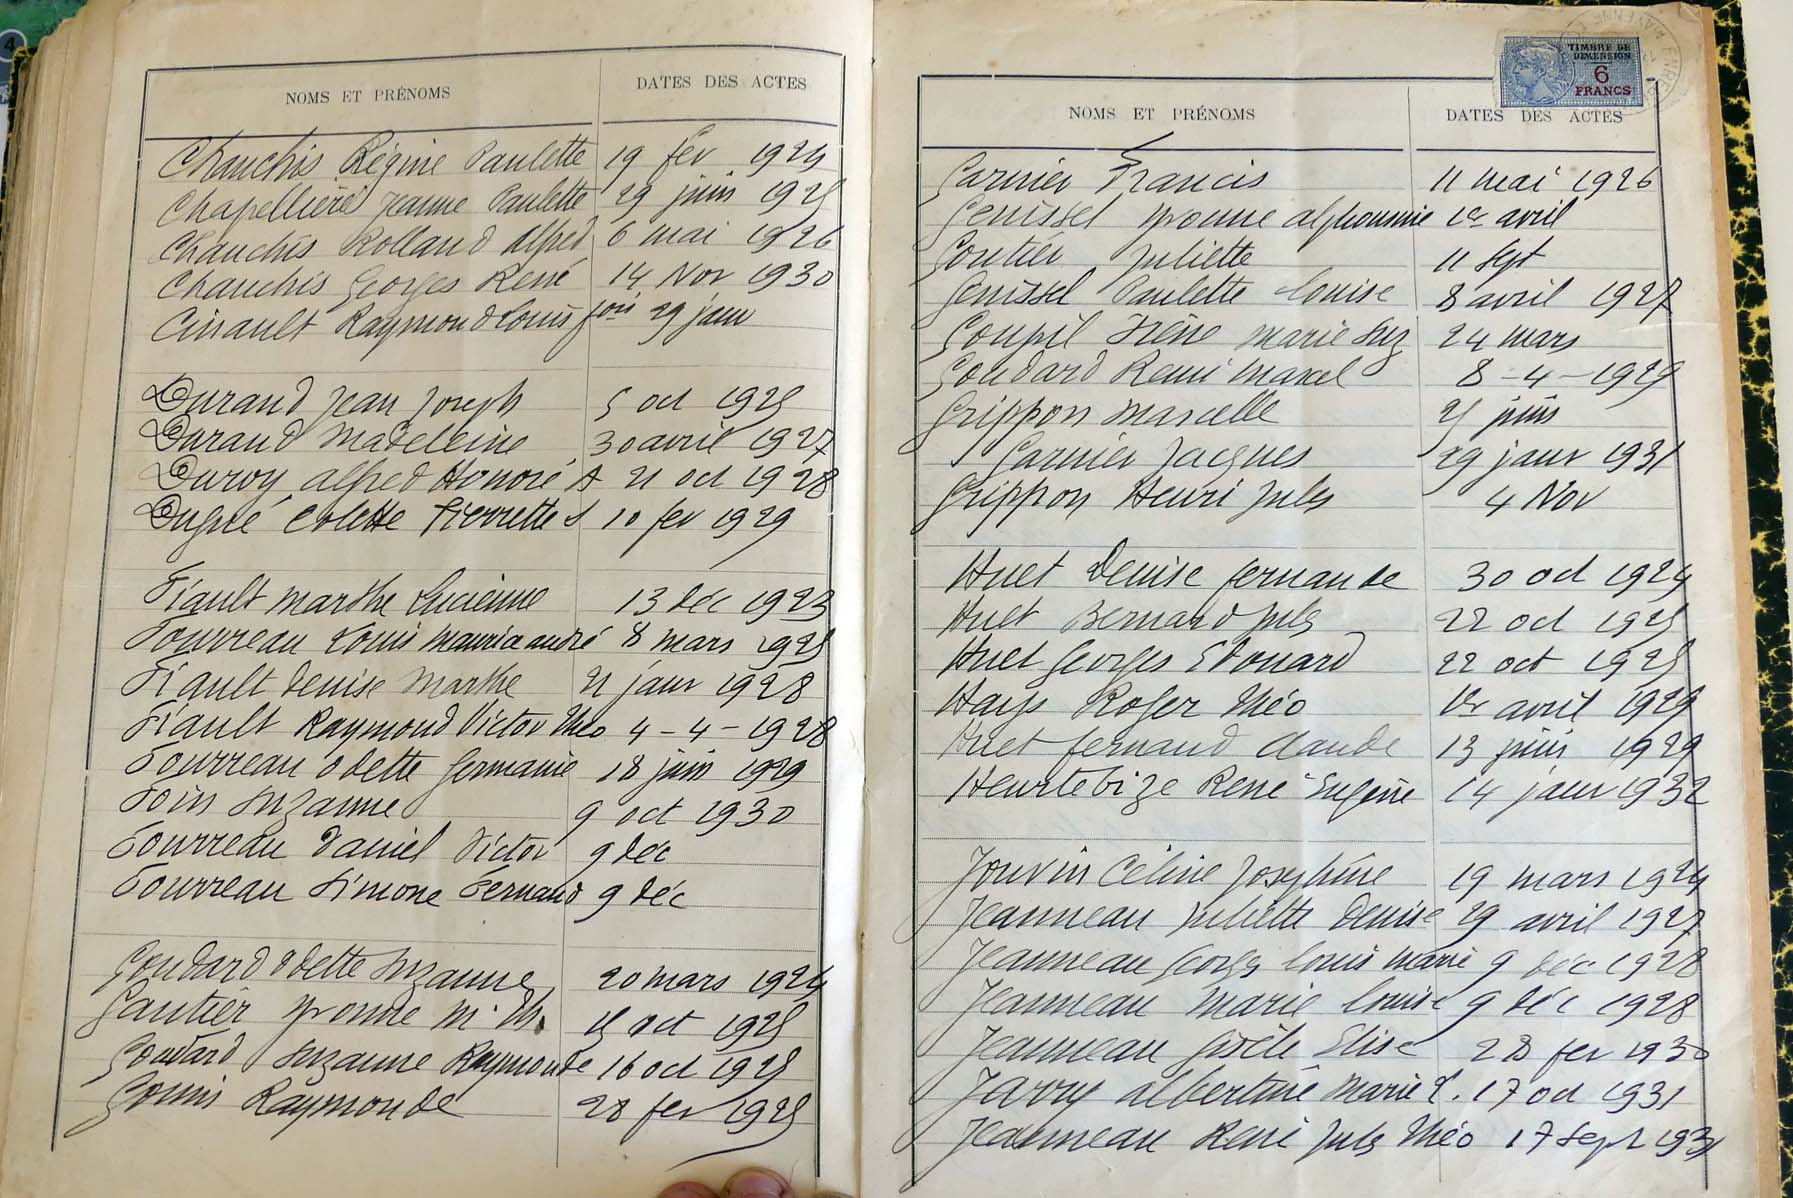 NOMS ET PRÉNOMS DATES DES ACTES
Chauchis Régine Paulette 19 fev 1924
Chapellière Jeanne Paulette 29 juin 1925
Chauchis Rolland Alfred 6 mai 1926
Chauchis Georges René 14 Nov 1930
Cinault Raymond Louis 29 janv
Durand Jean Joseph 5 oct 1925
Durand Madeleine 30 avril 1927
Duroy alfred Honoré A 21 oct 1928
Dugué Colette Pierrette S 10 fev 1929
Fiault Marthe Lucienne 13 Déc 1923
Fourreau Louis Maurice andré 8 mars 1925
Fiault Denise Marthe 21 janv 1928
Fiault Raymond Victor Théo 4-4-1928
Fourreau Odette Germaine 18 juin 1929
Foin Suzanne 9 oct 1930
Fourreau Daniel Victor 9 Déc
Fourreau Simone Fernand 9 Déc
Goudard Odette Suzanne 20 mars 1924
Gautier Yvonne M. Th. 15 oct 1925
Goudard Suzanne Raymonde 16 oct 1925
Gouin Raymonde 28 fev 1925
TIMBRE DE
DIMENSION
6
FRANCS
NOMS ET PRÉNOMS DATES DES ACTES
Garnier Francis 11 mai 1926
Genissel Yvonne alphonsine 1er avril
Goutier Juliette 11 Sept
Genissel Paulette Louise 8 avril 1927
Goupil Irène Marie Suz 24 mars
Goudard Remi Marcel 8-4-1929
Grippon Marcelle 25 juin
Garnier Jacques 29 janv 1931
Grippon Henri Jules 4 Nov
Huet Denise fernande 30 oct 1924
Huet Bernard Jules 22 oct 1925
Huet Georges Edouard 22 oct 1925
Hays Roger Théo 1er avril 1929
Huet fernand Claude 13 juin 1929
Heurtebize René Eugène 14 janv 1932
Jouvin Céline Joséphine 19 mars 1924
Jeanneau Juliette Denise 29 avril 1927
Jeanneau Georges Louis Marie 9 déc 1928
Jeanneau Marie Louise 9 Déc 1928
Jeanneau Gisèle Elise 28 fev 1930
Jarry albertine Marie L. 17 oct 1931
Jeanneau René Jules Théo 17 Sept 193